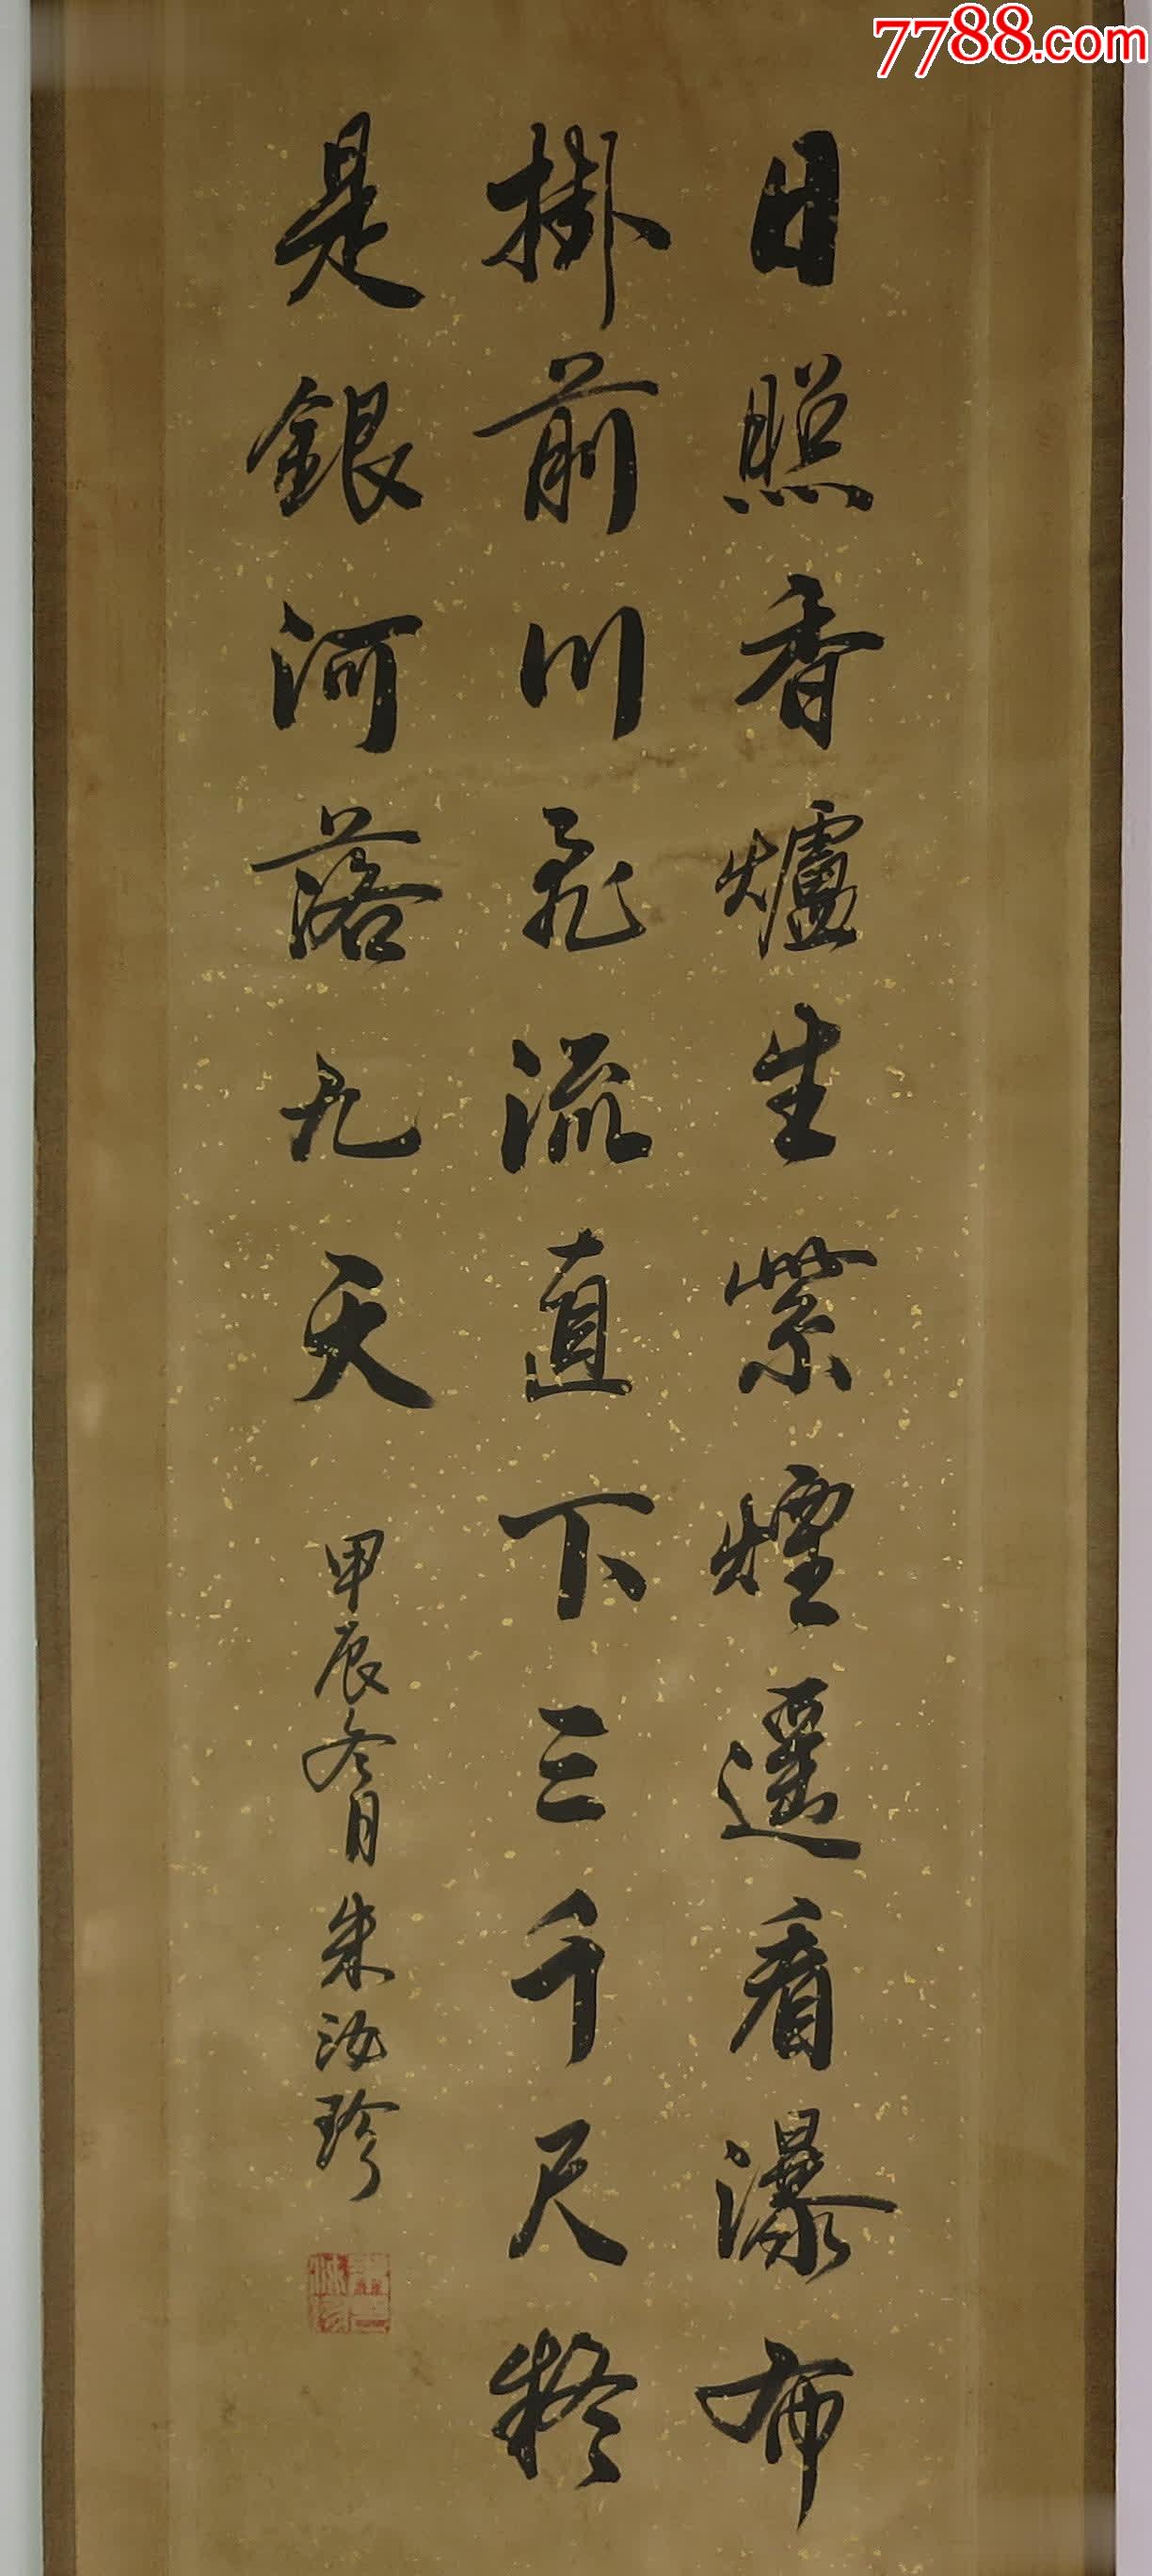 7788.com
日照香爐生紫煙遥看瀑布
掛前川飛流直下三千尺疑
是銀河落九天
甲辰冬月朱汝珍